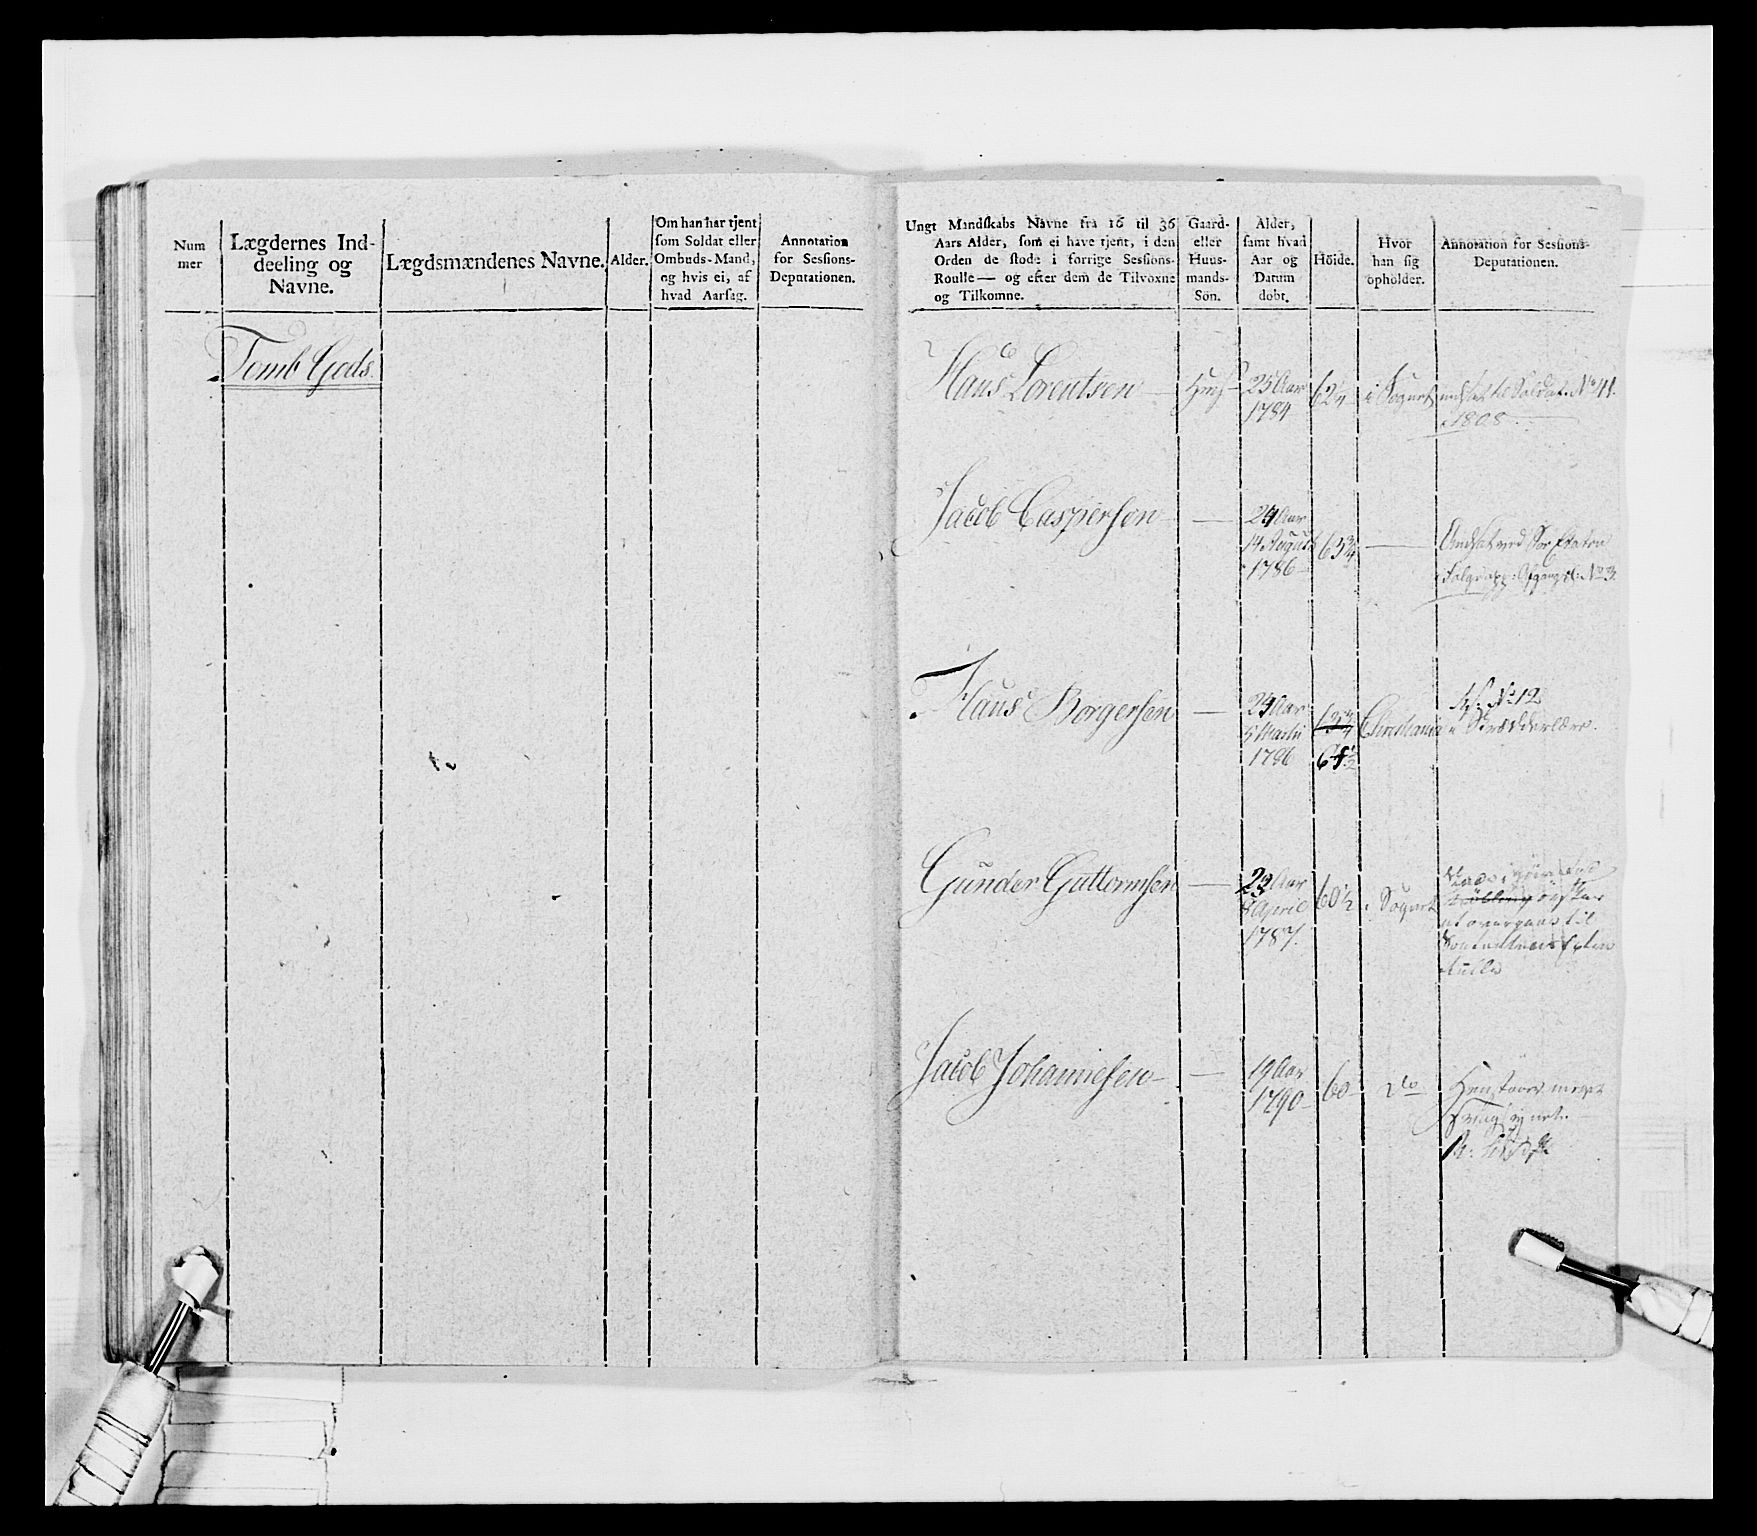 Num
mer
Lægdernes Ind-
deeling og
Navne.
Lægdsmændenes Navne.
Alder.
Om han har tjent
som Soldat eller
Ombuds-Mand,
og hvis ei, af
hvad Aarsag.
Annotation
for Sessions-
Deputationen.
Tomb Gods.
Ungt Mandskabs Navne fra 16 til 36
Aars Alder, som ei have tjent, i den
Orden de stode i forrige Sessions-
Roulle — og efter dem de Tilvoxne
og Tilkomne.
Gaard-
eller
Huus-
mands-
Sön.
Alder,
samt hvad
Aar og
Datum
dobt.
Höide.
Hvor
han sig
opholder.
Annotation for Sessions-
Deputationen.
Hans Lorentsen
25 Aar
1784
62 1/4
i Sognet
indsat til Soldat. No 41.
1808
Jacob Caspersen
24 Aar
14 August
1786
63 3/4
Andsat ved Söe Etaten
No 3
Hans Borgersen
24 Aar
5 Martii
1786
63 3/4
61 1/2
Christiania
No 12
i Skrædderlære.
Gunder Guttormsen
23 Aar
8 April
1787.
60 1/2
i Sognet
at overgaae til
rulle
Jacob Johannesen
19 Aar
1790
60
do
meget